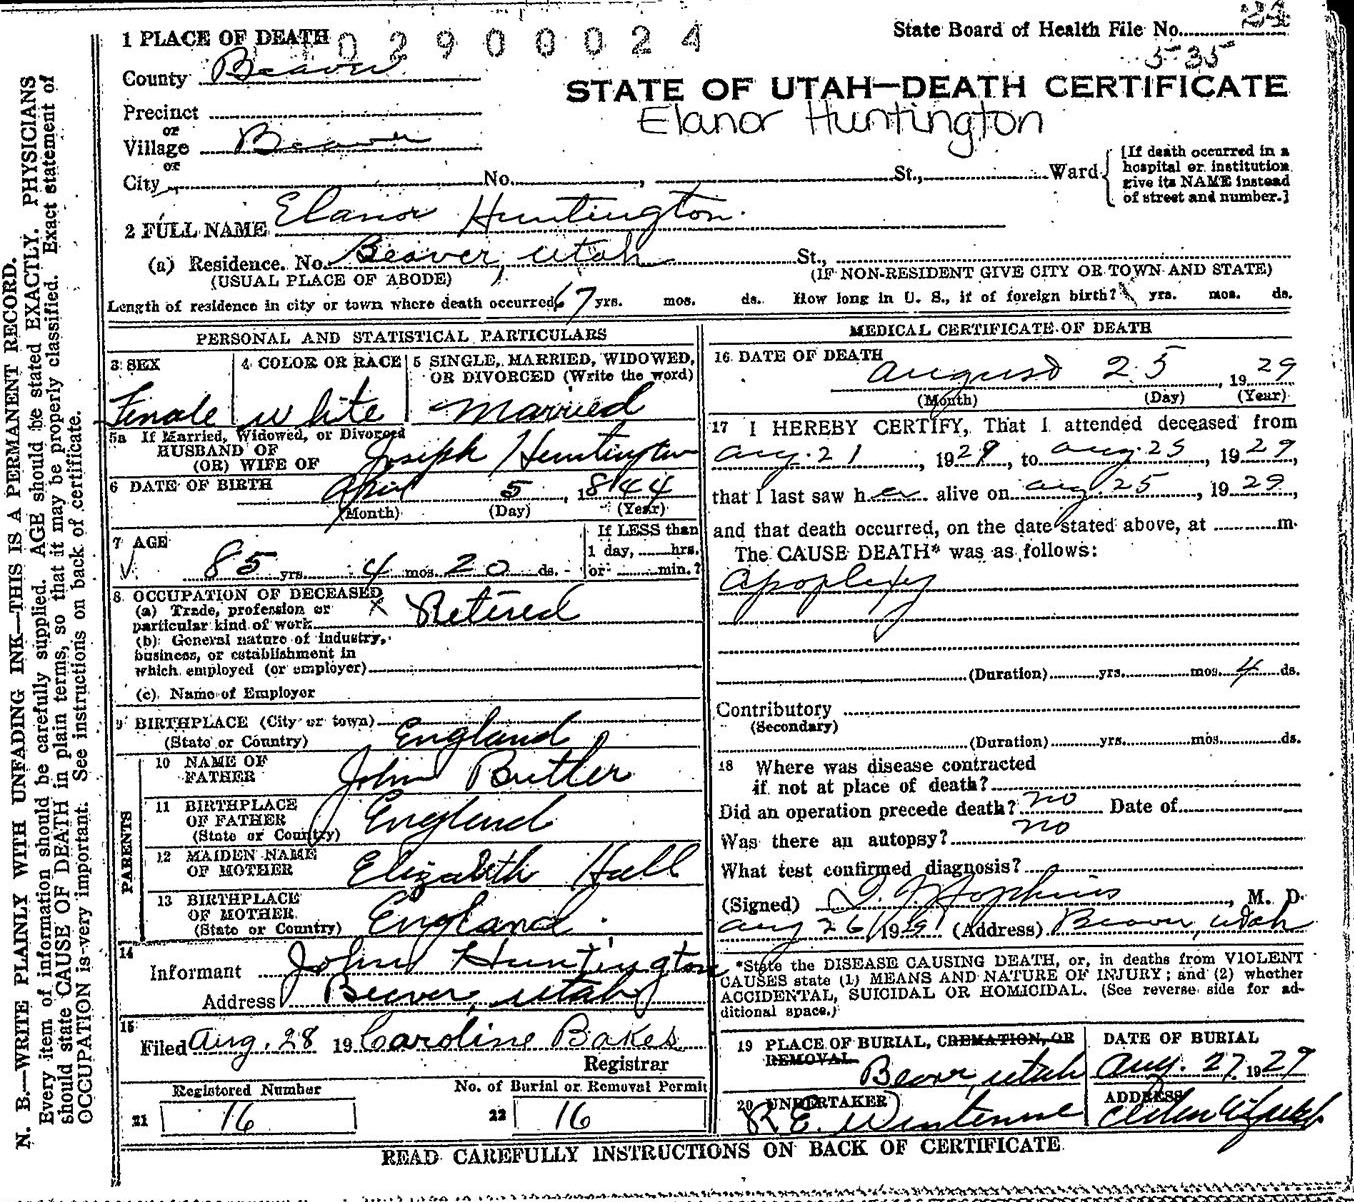 1 PLACE OF DEATH
02900024
State Board of Health File No. 24
5-35
County Beaver
STATE OF UTAH—DEATH CERTIFICATE
Elanor Huntington
Precinct
or
Village Beaver
or
City No. , St., Ward
[If death occurred in a
hospital or institution
give its NAME instead
of street and number.]
2 FULL NAME Elanor Huntington
(a) Residence. No. Beaver, Utah St.,
(USUAL PLACE OF ABODE) (IF NON-RESIDENT GIVE CITY OR TOWN AND STATE)
Length of residence in city or town where death occurred 67 yrs. mos. ds. How long in U. S., if of foreign birth? yrs. mos. ds.
PERSONAL AND STATISTICAL PARTICULARS
3 SEX
Female
4 COLOR OR RACE
white
5 SINGLE, MARRIED, WIDOWED,
OR DIVORCED (Write the word)
Married
5a If Married, Widowed, or Divorced
HUSBAND OF
(OR) WIFE OF Joseph Huntington
6 DATE OF BIRTH April 5, 1844
(Month) (Day) (Year)
7 AGE
85 yrs. 4 mos. 20 ds.
If LESS than
1 day, hrs.
or min.?
8 OCCUPATION OF DECEASED
(a) Trade, profession or
particular kind of work X Retired
(b) General nature of industry,
business, or establishment in
which employed (or employer)
(c) Name of Employer
9 BIRTHPLACE (City or town)
(State or Country) England
PARENTS
10 NAME OF
FATHER John Butler
11 BIRTHPLACE
OF FATHER
(State or Country) England
12 MAIDEN NAME
OF MOTHER Elizabeth Hall
13 BIRTHPLACE
OF MOTHER
(State or Country) England
14
Informant John Huntington
Address Beaver, Utah
15
Filed Aug. 28 19 Caroline Bakes
Registrar
Registered Number
21 16
No. of Burial or Removal Permit
22 16
MEDICAL CERTIFICATE OF DEATH
16 DATE OF DEATH
August 25, 1929
(Month) (Day) (Year)
17 I HEREBY CERTIFY, That I attended deceased from
Aug. 21, 1929, to Aug. 25, 1929,
that I last saw her alive on Aug. 25, 1929,
and that death occurred, on the date stated above, at m.
The CAUSE DEATH* was as follows:
Apoplexy
(Duration) yrs. mos. 4 ds.
Contributory
(Secondary)
(Duration) yrs. mos. ds.
18 Where was disease contracted
if not at place of death?
Did an operation precede death? no Date of
Was there an autopsy? no
What test confirmed diagnosis?
(Signed) Hopkins, M. D.
Aug 26, 1929 (Address) Beaver, Utah
*State the DISEASE CAUSING DEATH, or, in deaths from VIOLENT
CAUSES state (1) MEANS AND NATURE OF INJURY; and (2) whether
ACCIDENTAL, SUICIDAL OR HOMICIDAL. (See reverse side for ad-
ditional space.)
19 PLACE OF BURIAL, CREMATION, OR
REMOVAL
Beaver, Utah
DATE OF BURIAL
Aug. 27, 1929
20 UNDERTAKER
R. E.
ADDRESS
READ CAREFULLY INSTRUCTIONS ON BACK OF CERTIFICATE
N. B.—WRITE PLAINLY WITH UNFADING INK—THIS IS A PERMANENT RECORD.
Every item of information should be carefully supplied. AGE should be stated EXACTLY. PHYSICIANS
should state CAUSE OF DEATH in plain terms, so that it may be properly classified. Exact statement of
OCCUPATION is very important. See instructions on back of certificate.